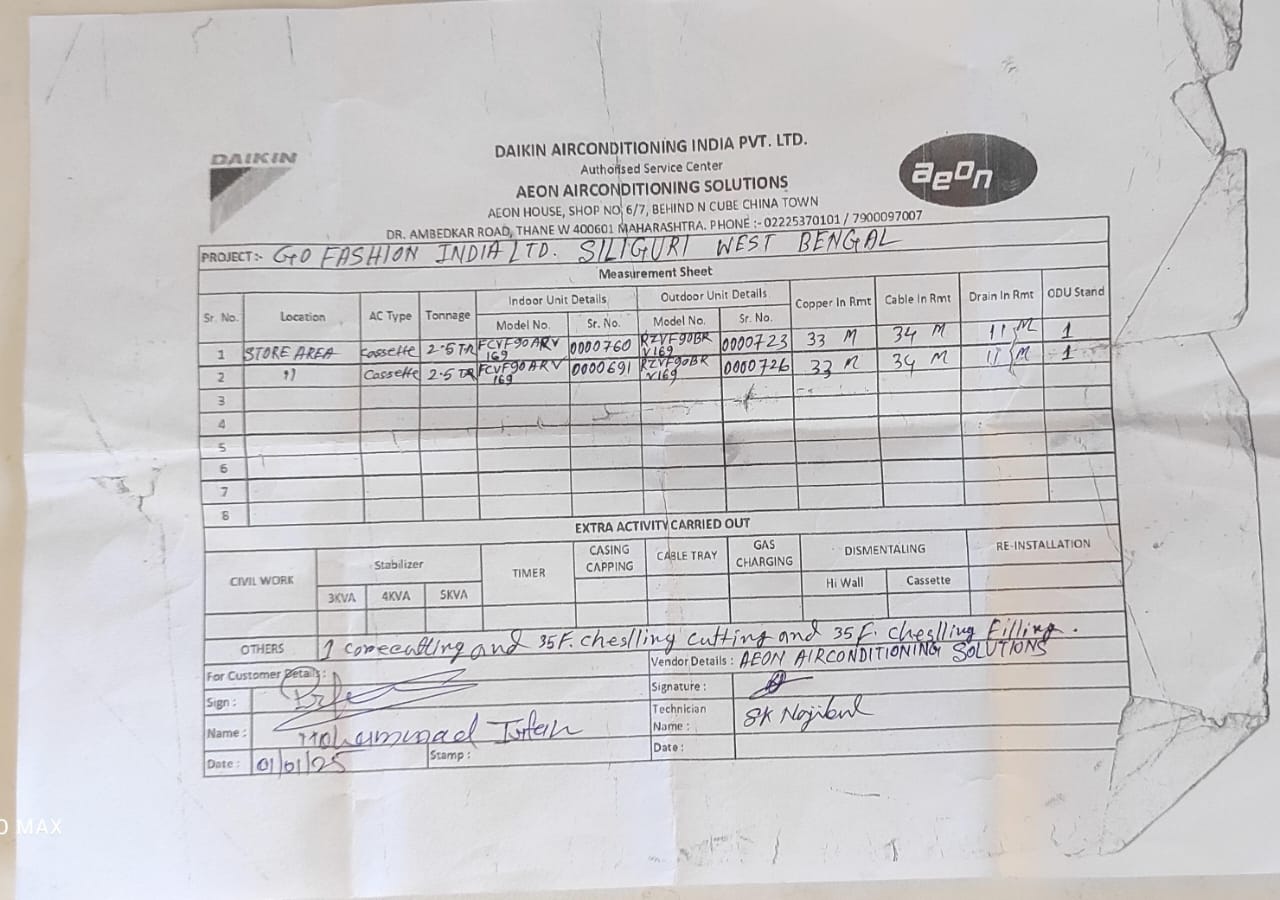 DAIKIN
DAIKIN AIRCONDITIONING INDIA PVT. LTD.
Authorised Service Center
AEON AIRCONDITIONING SOLUTIONS
aeon
AEON HOUSE, SHOP NO 6/7, BEHIND N CUBE CHINA TOWN
DR. AMBEDKAR ROAD, THANE W 400601 MAHARASHTRA. PHONE :- 02225370101 / 7900097007
PROJECT:- GO FASHION INDIA LTD. SILIGURI WEST BENGAL
Measurement Sheet
Sr. No. Location AC Type Tonnage Indoor Unit Details Outdoor Unit Details Copper In Rmt Cable In Rmt Drain In Rmt ODU Stand
Model No. Sr. No. Model No. Sr. No.
1 STORE AREA Cassette 2.5 TR FCVF90ARV 169 0000760 RZVF90BR V169 0000723 33 M 34 M 11 M 1
2 " Cassette 2.5 TR FCVF90ARV 169 0000691 RZVF90BR V169 0000726 33 M 34 M 11 M 1
3
4
5
6
7
8
EXTRA ACTIVITY CARRIED OUT
CIVIL WORK Stabilizer TIMER CASING CAPPING CABLE TRAY GAS CHARGING DISMENTALING RE-INSTALLATION
3KVA 4KVA 5KVA Hi Wall Cassette
OTHERS 1 corecutting and 35F. cheslling cutting and 35F. cheslling Filling.
For Customer Details: Vendor Details : AEON AIRCONDITIONING SOLUTIONS
Sign : Signature :
Name : Mohammad Irfan Technician Name : SK Nojibul
Date : 01/01/25 Stamp : Date :
O MAX